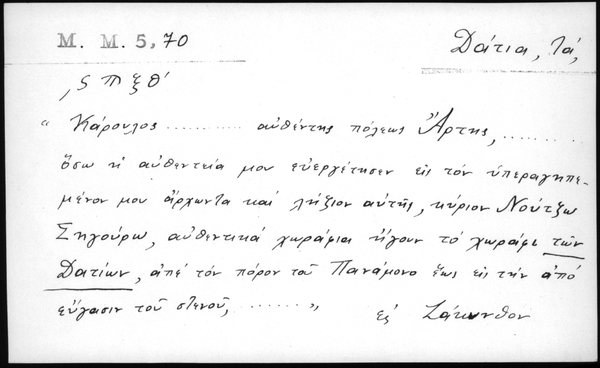 M. M. 5, 70
Δάτια, τά,
͵ϛπξθ´
"Κάρουλος .......... αὐθέντης πόλεως Ἄρτης, ........
ὅσω ἡ αὐθεντεία μου εὐεργέτησεν εἰς τὸν ὑπεραγηπε-
μένον μου ἄρχωντα καὶ λήζιον αὐτῆς, κύριον Νούτζω
Σηγούρω, αὐθεντικά χωράφια ἤγουν τό χωράφι τῶν
Δατίων, ἀπέ τόν πόρον τοῦ Πανάμονο ἕως εἰς τήν ἀπό
εὔγασιν τοῦ στενοῦ, ........ "
εἰς Ζάκυνθον